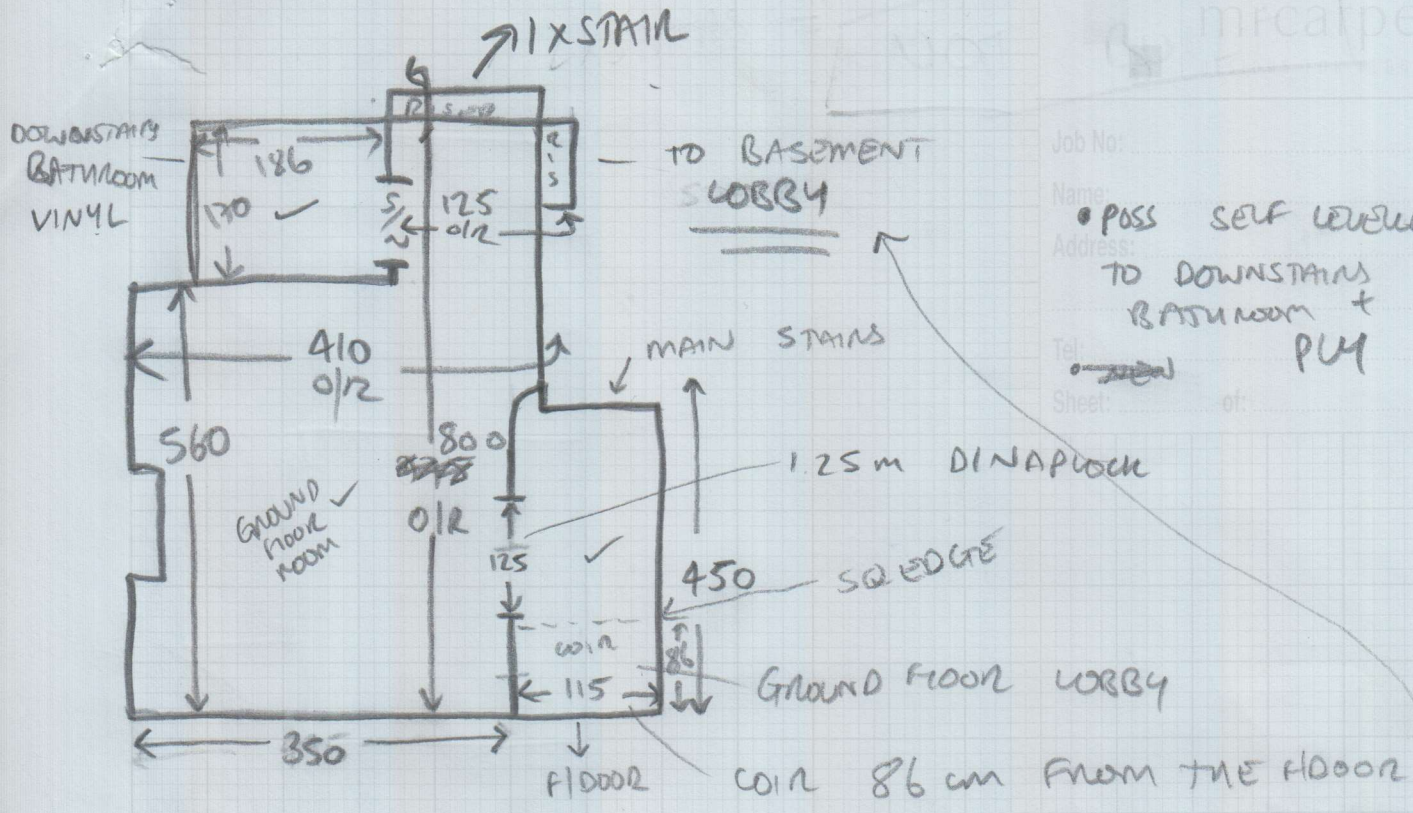 1 X STAIR
DOWNSTAIRS
BATHROOM
VINYL
186
170
S/N
125
O/R
RIS
TO BASEMENT
LOBBY
mrcarpe
Job No:
Name:
• POSS SELF LEVELL
Address:
TO DOWNSTAIRS
BATHROOM +
PLY
Tel:
Sheet: of:
410
O/R
MAIN STAIRS
560
800
O/R
GROUND
FLOOR
ROOM
1.25m DINAPLOCK
125
450
SQ EDGE
COIR
86
115
GROUND FLOOR LOBBY
350
F/DOOR
COIR 86 cm FROM THE F/DOOR